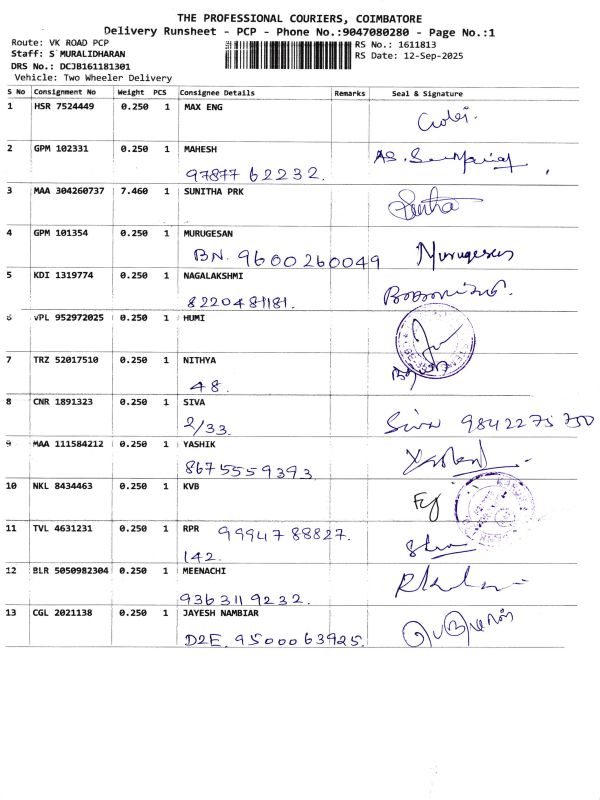 THE PROFESSIONAL COURIERS, COIMBATORE
Delivery Runsheet - PCP - Phone No.:9047080280 - Page No.:1
Route: VK ROAD PCP
RS No.: 1611813
Staff: S MURALIDHARAN
RS Date: 12-Sep-2025
DRS No.: DCJB161181301
Vehicle: Two Wheeler Delivery
S No Consignment No Weight PCS Consignee Details Remarks Seal & Signature
1 HSR 7524449 0.250 1 MAX ENG
2 GPM 102331 0.250 1 MAHESH
97877 62232.
3 MAA 304260737 7.460 1 SUNITHA PRK
4 GPM 101354 0.250 1 MURUGESAN
BN. 9600260049 Murugesan
5 KDI 1319774 0.250 1 NAGALAKSHMI
8220481181.
6 VPL 952972025 0.250 1 HUMI
7 TRZ 52017510 0.250 1 NITHYA
48.
8 CNR 1891323 0.250 1 SIVA
2/33. Siva 9842275750
9 MAA 111584212 0.250 1 YASHIK
8675559393.
10 NKL 8434463 0.250 1 KVB
11 TVL 4631231 0.250 1 RPR 9994788827.
142.
12 BLR 5050982304 0.250 1 MEENACHI
9363119232.
13 CGL 2021138 0.250 1 JAYESH NAMBIAR
D2E. 9500063925.